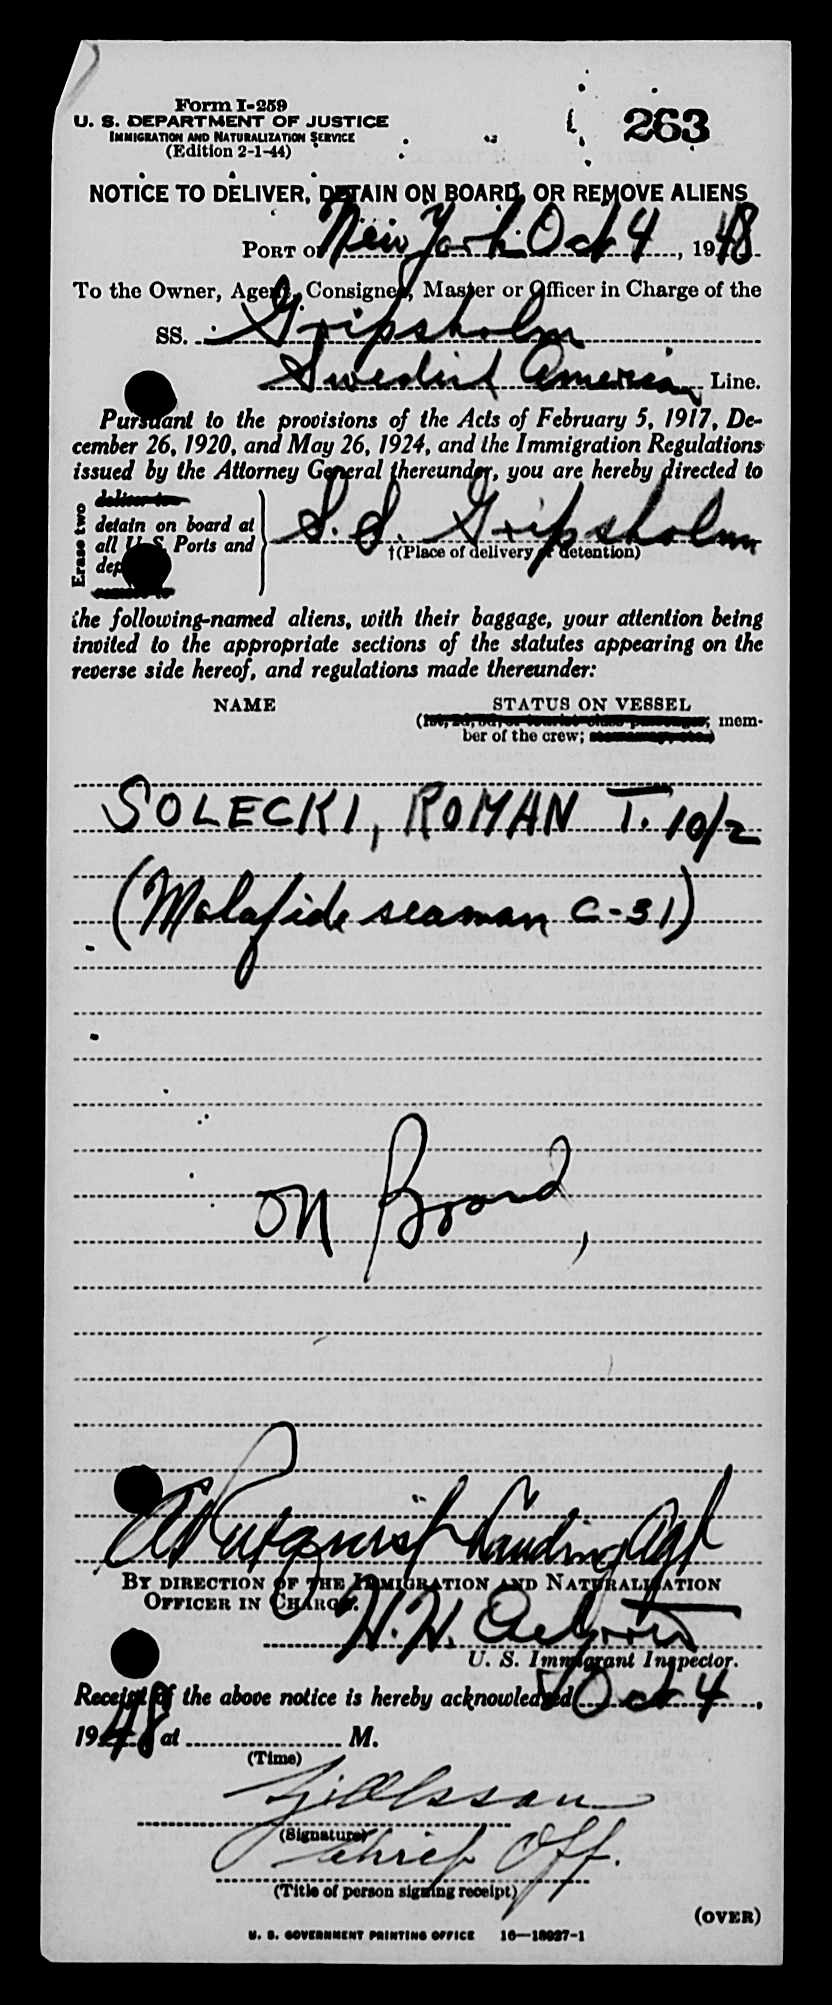 Form I-259
U. S. DEPARTMENT OF JUSTICE
IMMIGRATION AND NATURALIZATION SERVICE
(Edition 2-1-44)
263
NOTICE TO DELIVER, DETAIN ON BOARD, OR REMOVE ALIENS
PORT OF New York Oct 4, 1948
To the Owner, Agent, Consignee, Master or Officer in Charge of the
SS. Gripsholm
Swedish American Line.
Pursuant to the provisions of the Acts of February 5, 1917, De-
cember 26, 1920, and May 26, 1924, and the Immigration Regulations
issued by the Attorney General thereunder, you are hereby directed to
Erase two
deliver to
detain on board at
all U. S. Ports and
dep
remove to
S.S. Gripsholm
†(Place of delivery or detention)
the following-named aliens, with their baggage, your attention being
invited to the appropriate sections of the statutes appearing on the
reverse side hereof, and regulations made thereunder:
NAME
STATUS ON VESSEL
(1st, 2d, 3d, or tourist class passenger; mem-
ber of the crew; stowaway, etc.)
SOLECKI, ROMAN T. 10/2
(Malafide seaman C-31)
on Board,
Landing Agt
BY DIRECTION OF THE IMMIGRATION AND NATURALIZATION
OFFICER IN CHARGE.
H. H.
U. S. Immigrant Inspector.
Receipt of the above notice is hereby acknowledged Oct 4,
1948 at M.
(Time)
Olsson
(Signature)
Chief Off.
(Title of person signing receipt)
(OVER)
U. S. GOVERNMENT PRINTING OFFICE 16—18027-1